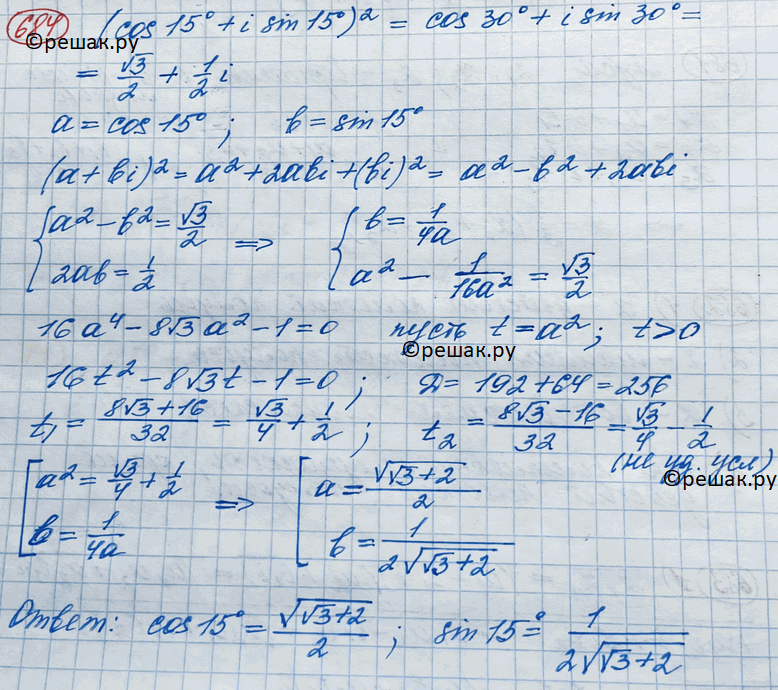 684 (cos 15° + i sin 15°)² = cos 30° + i sin 30° =
©решак.ру
= √3/2 + 1/2 i
a = cos 15° ; b = sin 15°
(a + bi)² = a² + 2abi + (bi)² = a² - b² + 2abi
{ a² - b² = √3/2 => { b = 1/4a
2ab = 1/2 a² - 1/16a² = √3/2
16a⁴ - 8√3 a² - 1 = 0 пусть t = a² ; t > 0
©решак.ру
16t² - 8√3 t - 1 = 0 ; Д = 192 + 64 = 256
t₁ = (8√3 + 16)/32 = √3/4 + 1/2 ; t₂ = (8√3 - 16)/32 = √3/4 - 1/2
(не уд. усл)
©решак.ру
[ a² = √3/4 + 1/2 => [ a = √(√3 + 2)/2
b = 1/4a b = 1/(2√(√3 + 2))
Ответ: cos 15° = √(√3 + 2)/2 ; sin 15° = 1/(2√(√3 + 2))